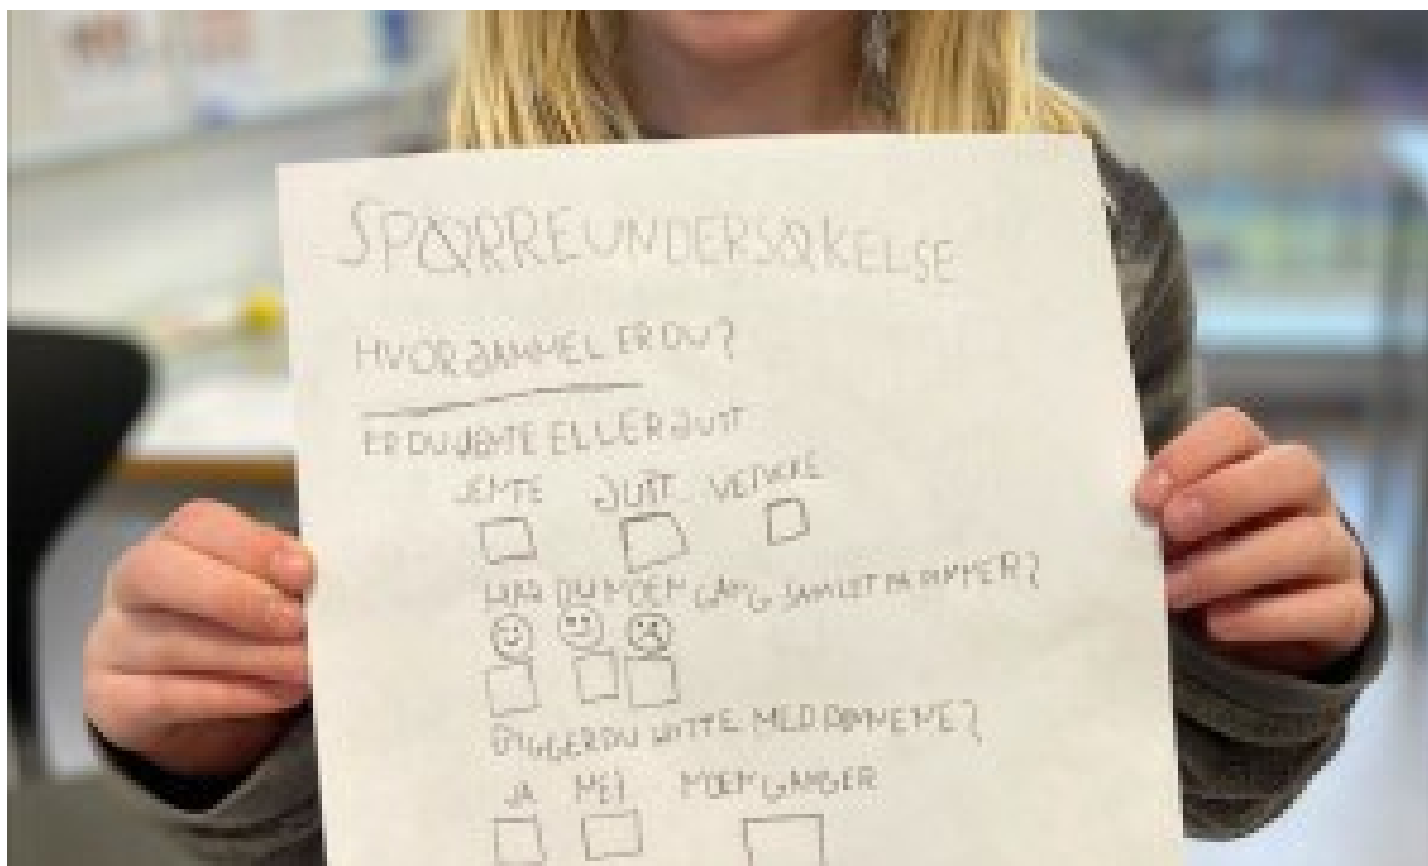 SPØRREUNDERSØKELSE
HVOR GAMMEL ER DU?
ER DU JENTE ELLER GUTT
JENTE GUTT
HAR DU NOEN GANG SAMLET PÅ PINNER?
BYGGER DU HYTTE MED PINNENE?
JA NEI NOEN GANGER